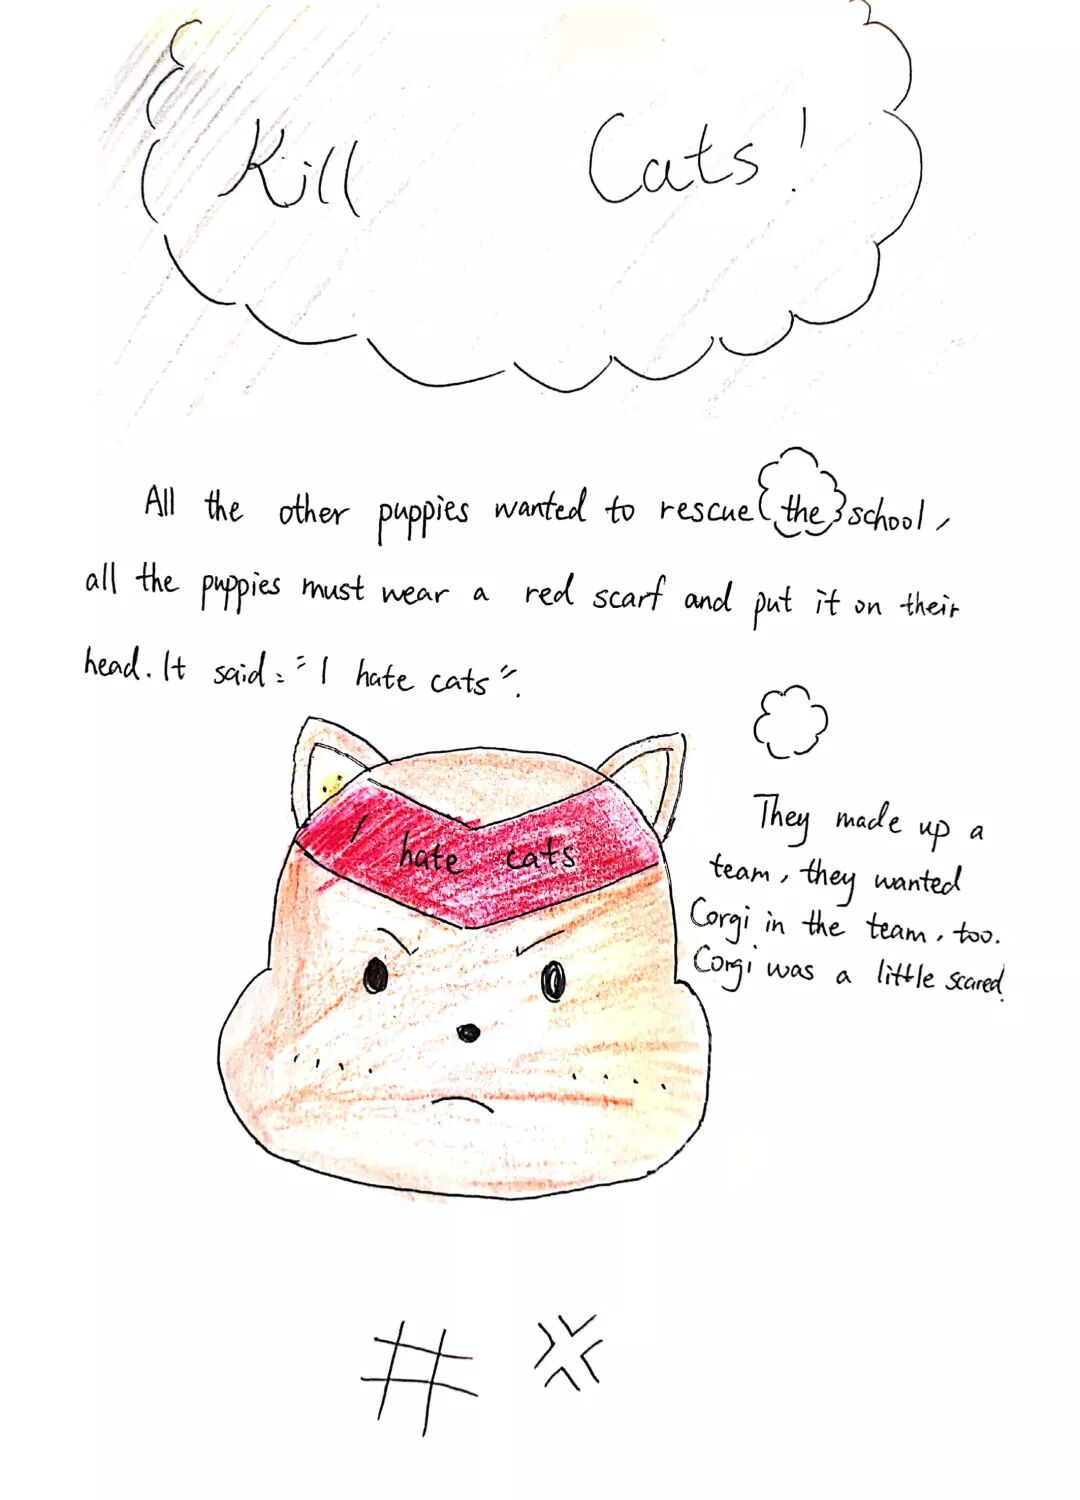 Kill Cats!
All the other puppies wanted to rescue the school,
all the puppies must wear a red scarf and put it on their
head. It said: "I hate cats".
I hate cats
They made up a
team, they wanted
Corgi in the team, too.
Corgi was a little scared.